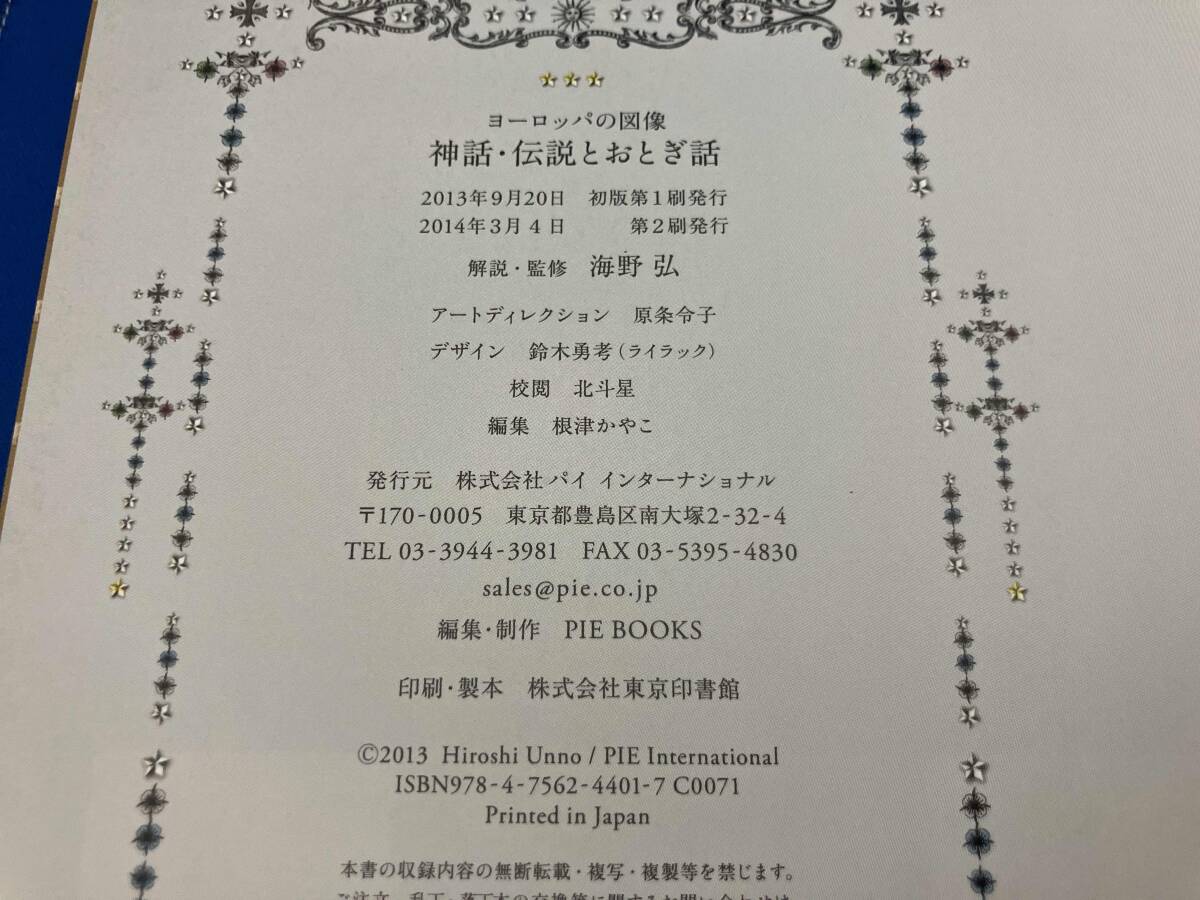 ヨーロッパの図像
神話・伝説とおとぎ話
2013年9月20日 初版第1刷発行
2014年3月4日 第2刷発行
解説・監修 海野 弘
アートディレクション 原条令子
デザイン 鈴木勇考（ライラック）
校閲 北斗星
編集 根津かやこ
発行元 株式会社パイ インターナショナル
〒170-0005 東京都豊島区南大塚2-32-4
TEL 03-3944-3981 FAX 03-5395-4830
sales@pie.co.jp
編集・制作 PIE BOOKS
印刷・製本 株式会社東京印書館
©2013 Hiroshi Unno / PIE International
ISBN978-4-7562-4401-7 C0071
Printed in Japan
本書の収録内容の無断転載・複写・複製等を禁じます。
ご注文、乱丁・落丁本の交換等に関するお問い合わせは、